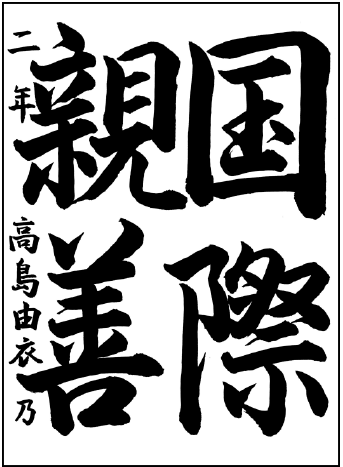 国際
親善
二年 高島由衣乃